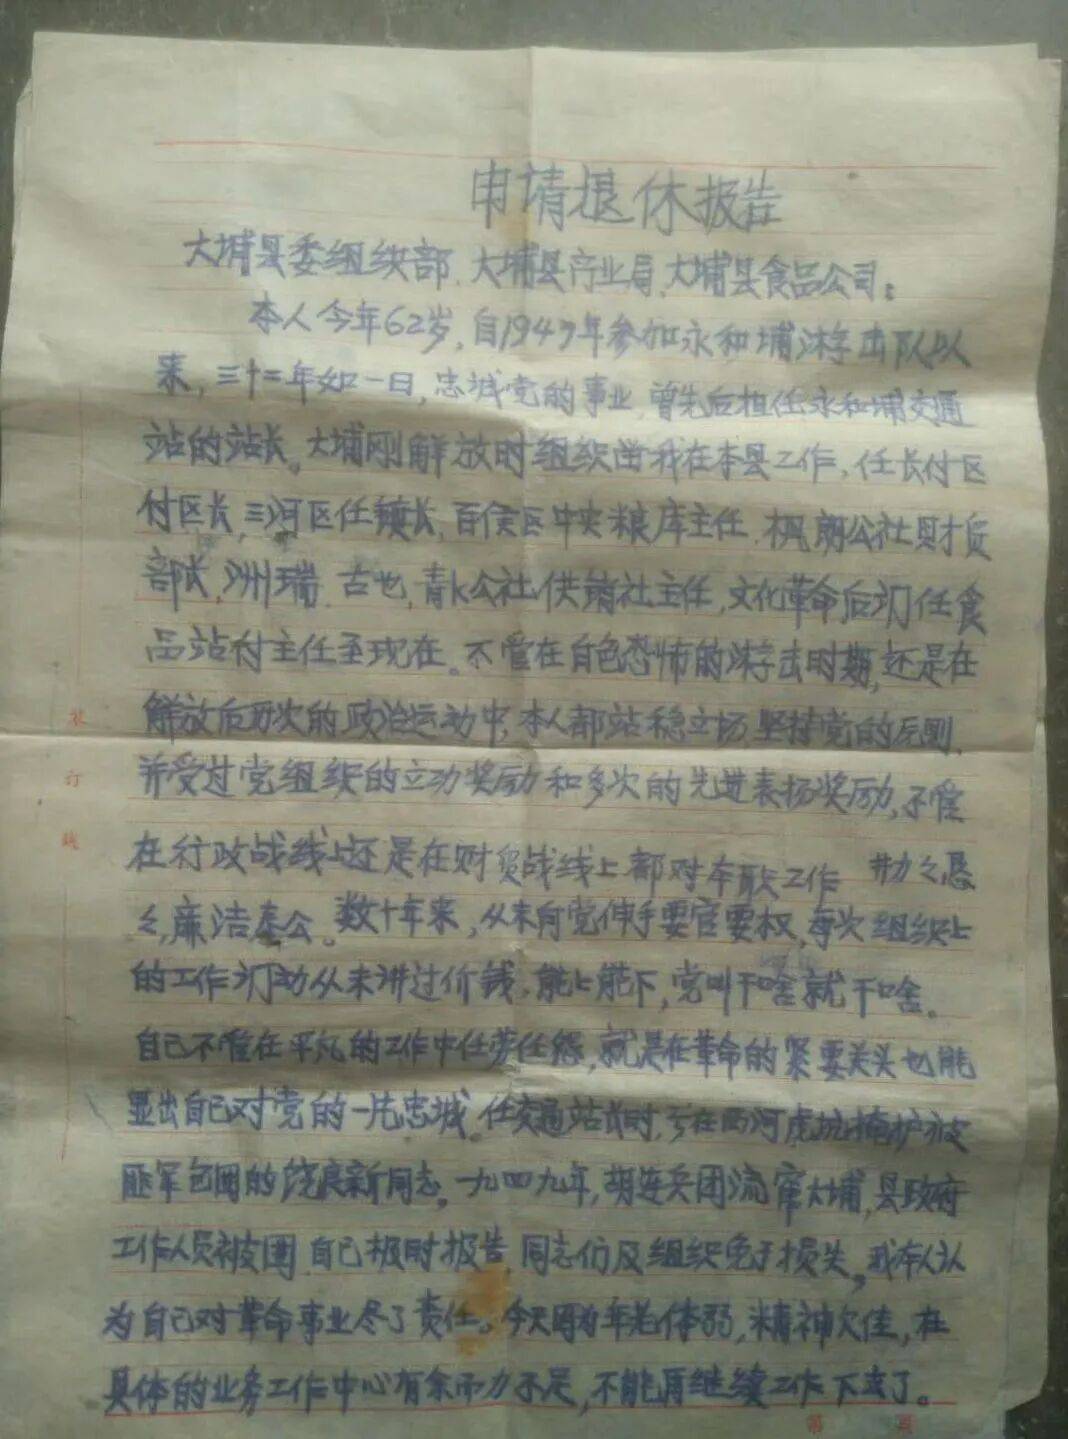 申请退休报告
大埔县委组织部、大埔县产业局、大埔县食品公司:
本人今年62岁,自1947年参加永和埔游击队以
来,三十二年如一日,忠诚党的事业,曾先后担任永和埔交通
站的站长。大埔刚解放时组织留我在本县工作,任长付区
付区长,三河区任镇长,百侯区中央粮库主任,枫朗公社财贸
部长,洲瑞、古也、青公社供销社主任,文化革命后调任食
品站付主任至现在。不管在白色恐怖的游击时期,还是在
解放后历次的政治运动中,本人都站稳立场,坚持党的原则,
并受过党组织的立功奖励和多次的先进表扬奖励,不管
在行政战线上还是在财贸战线上都对本职工作 勤之恳
之,廉洁奉公。数十年来,从未向党伸手要官要权,每次组织上
的工作调动从未讲过价钱,能上能下,党叫干啥就干啥。
自己不管在平凡的工作中任劳任怨,就是在革命的紧要关头也能
显出自己对党的一片忠诚。任交通站长时,在西河虎坑掩护被
匪军包围的饶良新同志。一九四九年,胡连兵团流窜大埔,县政府
工作人员被围,自己报时报告,同志们及组织免于损失。我本人认
为自己对革命事业尽了责任。今天因为年老体弱,精神欠佳,在
具体的业务工作中心有余而力不足,不能再继续工作下去了。
装
订
线
第 页